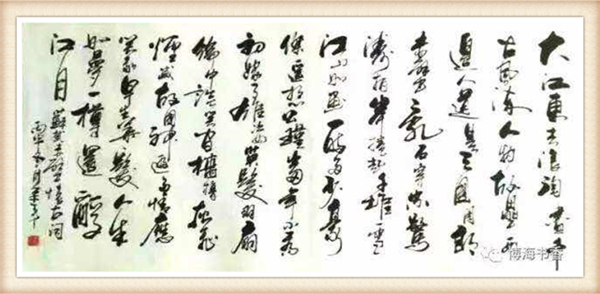 大江東去浪淘盡千
古風流人物故壘西
邊人道是三國周郎
赤壁亂石穿空驚
濤拍岸捲起千堆雪
江山如畫一時多少豪
傑遙想公瑾當年小喬
初嫁了雄姿英發羽扇
綸巾談笑間檣櫓灰飛
煙滅故國神遊多情應
笑我早生華髮人生
如夢一樽還酹
江月
赤壁懷古词
博海书香